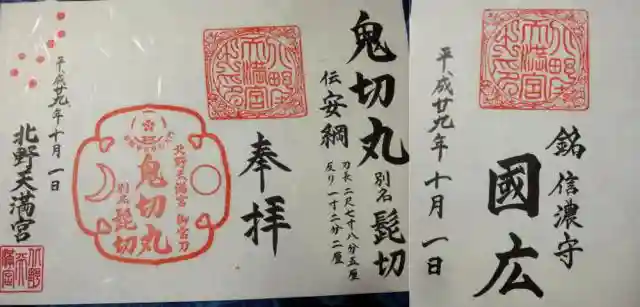 鬼切丸 別名 髭切
伝 安綱
刃長 二尺七寸八分五厘
反り 一寸二分二厘
奉拝
北野天満宮 御宝刀
鬼切丸
別名 髭切
平成廿九年十月一日
北野天満宮
銘 信濃守
國広
平成廿九年十月一日